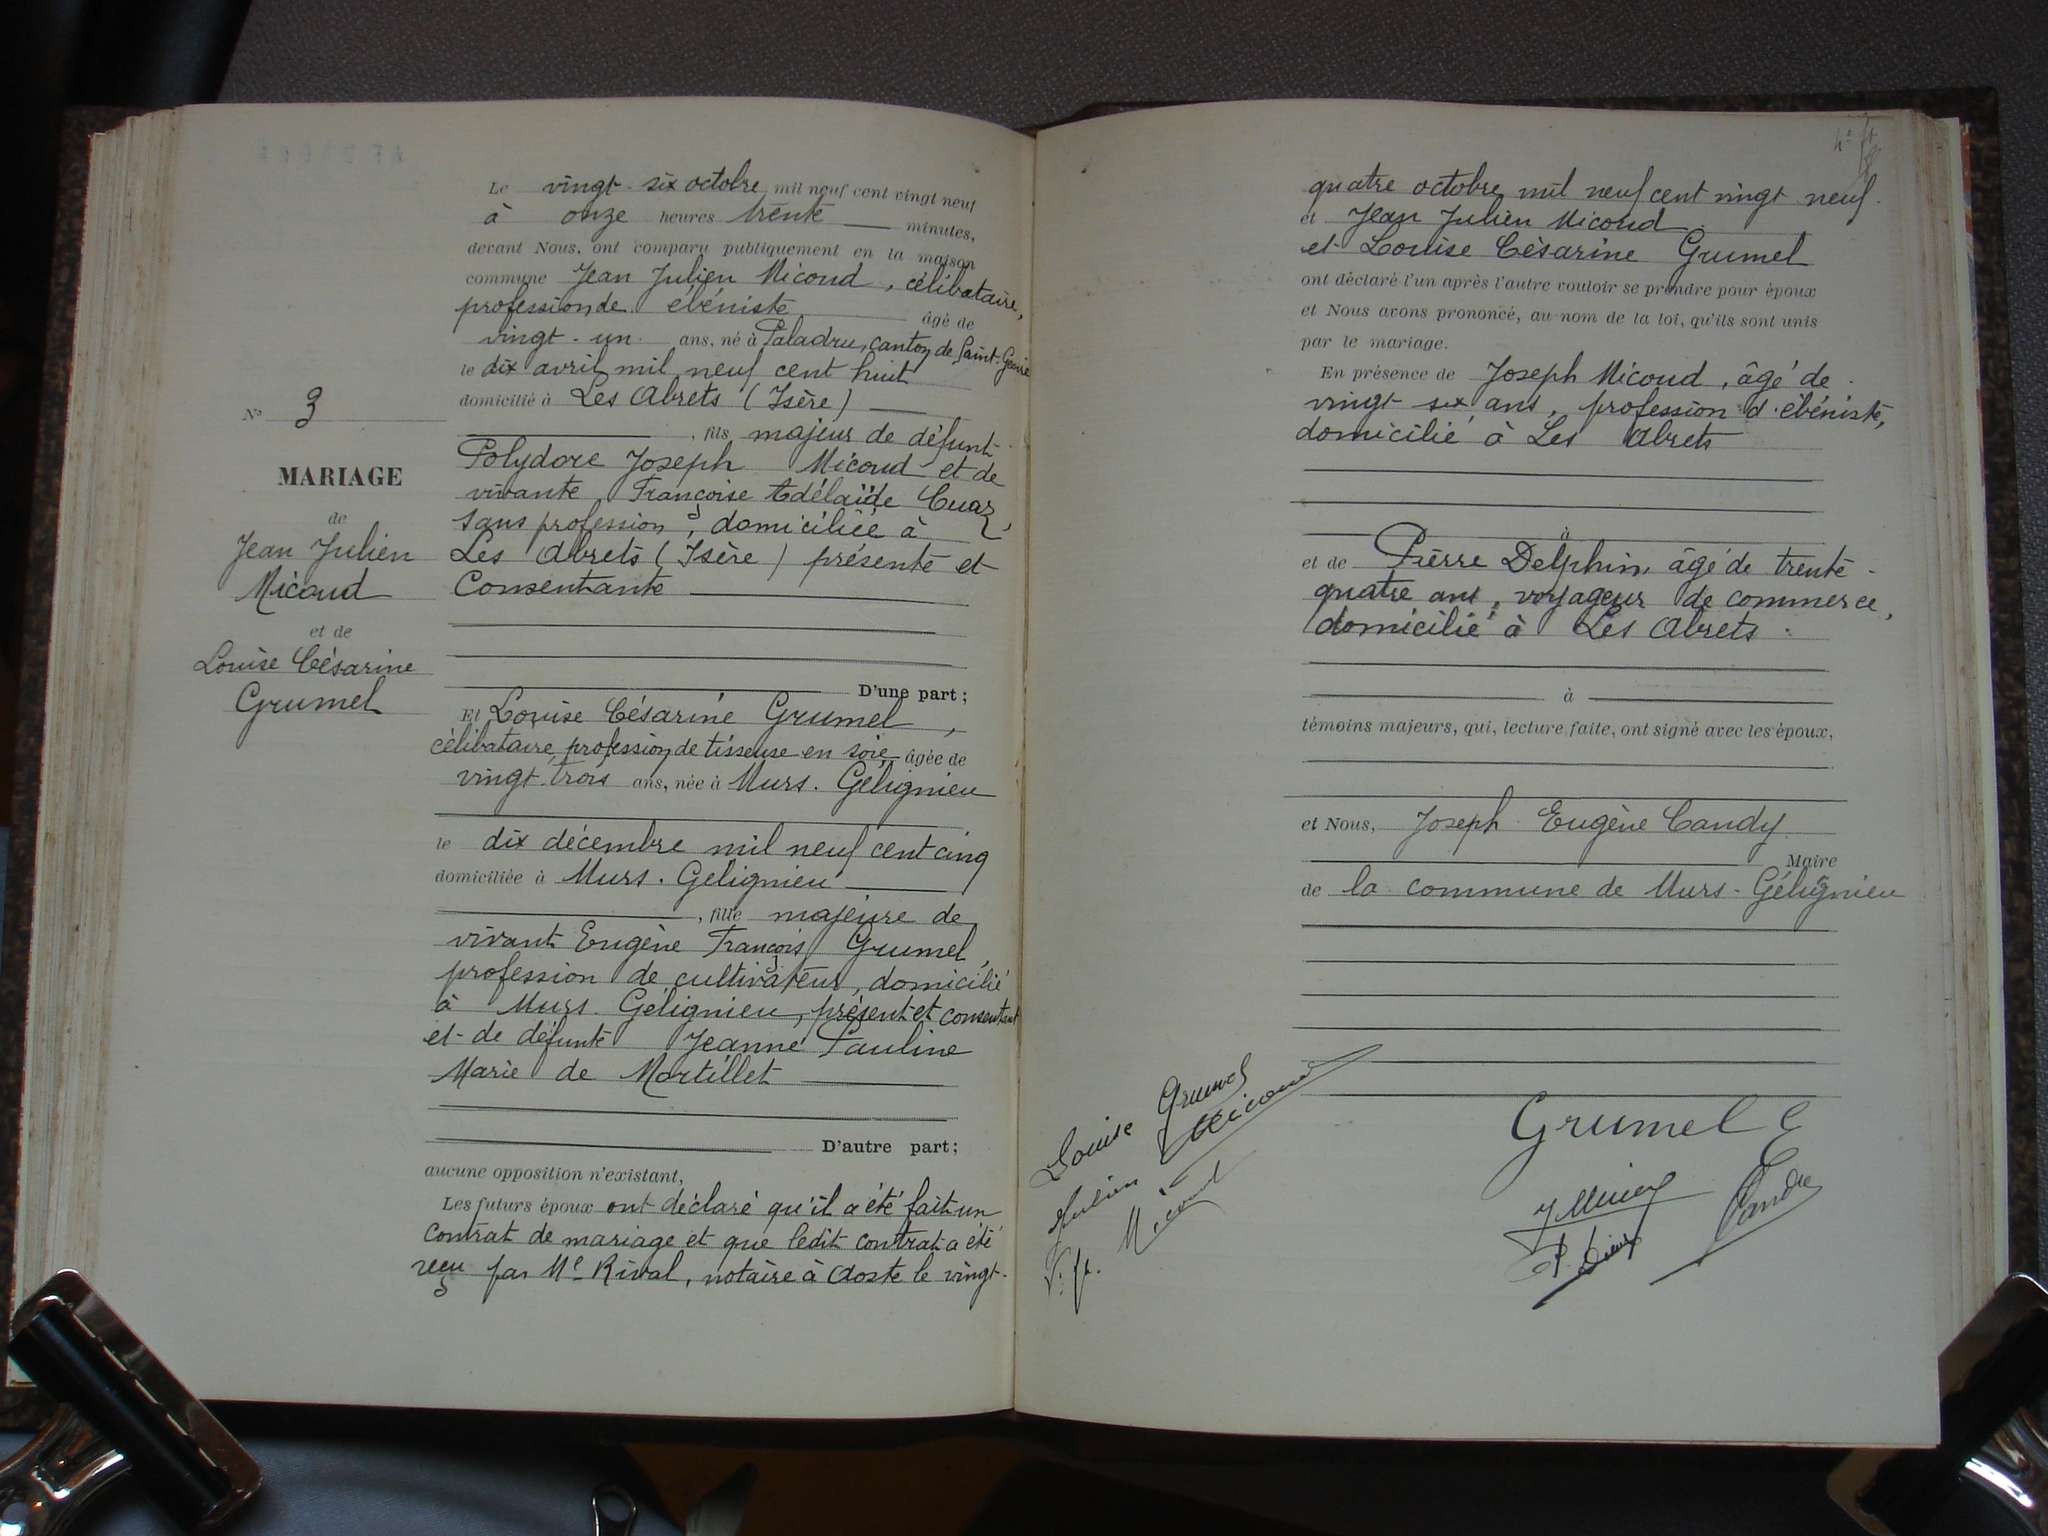 Nº 3
MARIAGE
de
Jean Julien
Micoud
et de
Louise Césarine
Grumel
Le vingt-six octobre mil neuf cent vingt neuf
à onze heures trente minutes,
devant Nous, ont comparu publiquement en la maison
commune Jean Julien Micoud, célibataire,
profession de ébéniste âgé de
vingt-un ans, né à Paladru, canton de Saint-Geoire
le dix avril mil neuf cent huit
domicilié à Les Abrets (Isère)
, fils majeur de défunt
Polydore Joseph Micoud et de
vivante Françoise Adélaïde Cuaz,
sans profession, domiciliée à
Les Abrets (Isère) présente et
Consentante
D'une part;
Et Louise Césarine Grumel,
célibataire, profession de tisseuse en soie, âgée de
vingt-trois ans, née à Murs-Gélignieu
le dix décembre mil neuf cent cinq
domiciliée à Murs-Gelignieu
, fille majeure de
vivant Eugène François Grumel,
profession de cultivateur, domicilié
à Murs Gélignieu, présent et consentant
et de défunte Jeanne Pauline
Marie de Mortillet
D'autre part;
aucune opposition n'existant,
Les futurs époux ont déclaré qu'il a été fait un
contrat de mariage et que ledit contrat a été
reçu par Me Rival, notaire à Aoste le vingt-
quatre octobre mil neuf cent vingt neuf.
et Jean Julien Micoud
et Louise Césarine Grumel
ont déclaré l'un après l'autre vouloir se prendre pour époux
et Nous avons prononcé, au nom de la loi, qu'ils sont unis
par le mariage.
En présence de Joseph Micoud, âgé de
vingt six ans, profession d'ébéniste,
domicilié à Les Abrets
à
et de Pierre Delphin, âgé de trente-
quatre ans, voyageur de commerce,
domicilié à Les Abrets.
à
témoins majeurs, qui, lecture faite, ont signé avec les époux,
et Nous, Joseph Eugène Candy
Maire
de la commune de Murs-Gélignieu
Louise Grumel
Julien Micoud
Vve Micoud
Grumel E